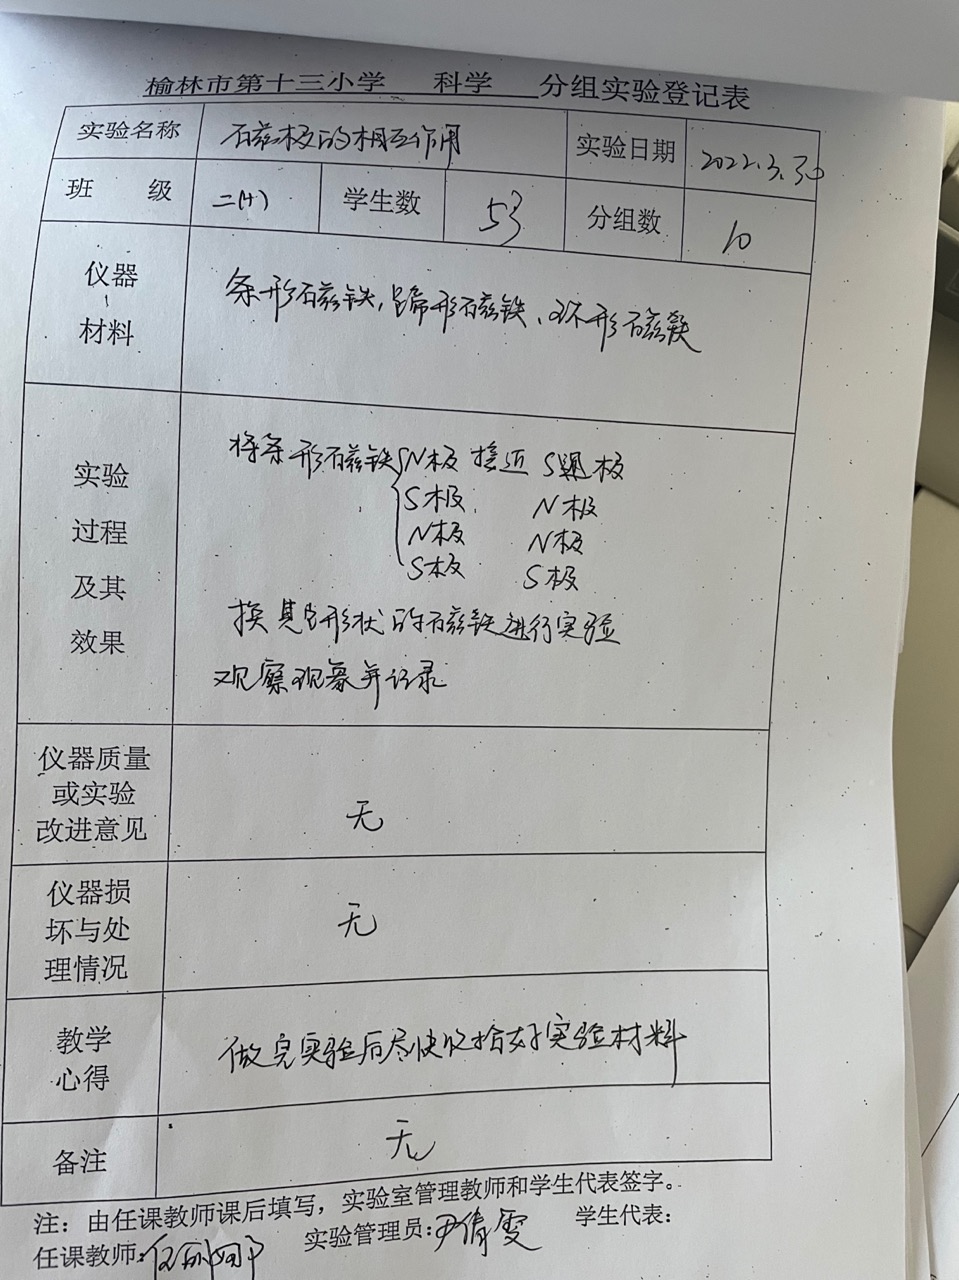 榆林市第十三小学 科学 分组实验登记表
实验名称 石磁极的相互作用 实验日期 2022.3.30
班 级 二(十) 学生数 53 分组数 10
仪器
材料
条形石磁铁,蹄形石磁铁、环形石磁铁
实验
过程
及其
效果
将条形石磁铁 N极 接近 S极
S极 N极
N极 N极
S极 S极
换其它形状的石磁铁进行实验
观察现象并记录
仪器质量
或实验
改进意见
无
仪器损
坏与处
理情况
无
教学
心得
做完实验后尽快收拾好实验材料
备注 无
注：由任课教师课后填写，实验室管理教师和学生代表签字。
任课教师: 实验管理员:尹倩雯 学生代表: